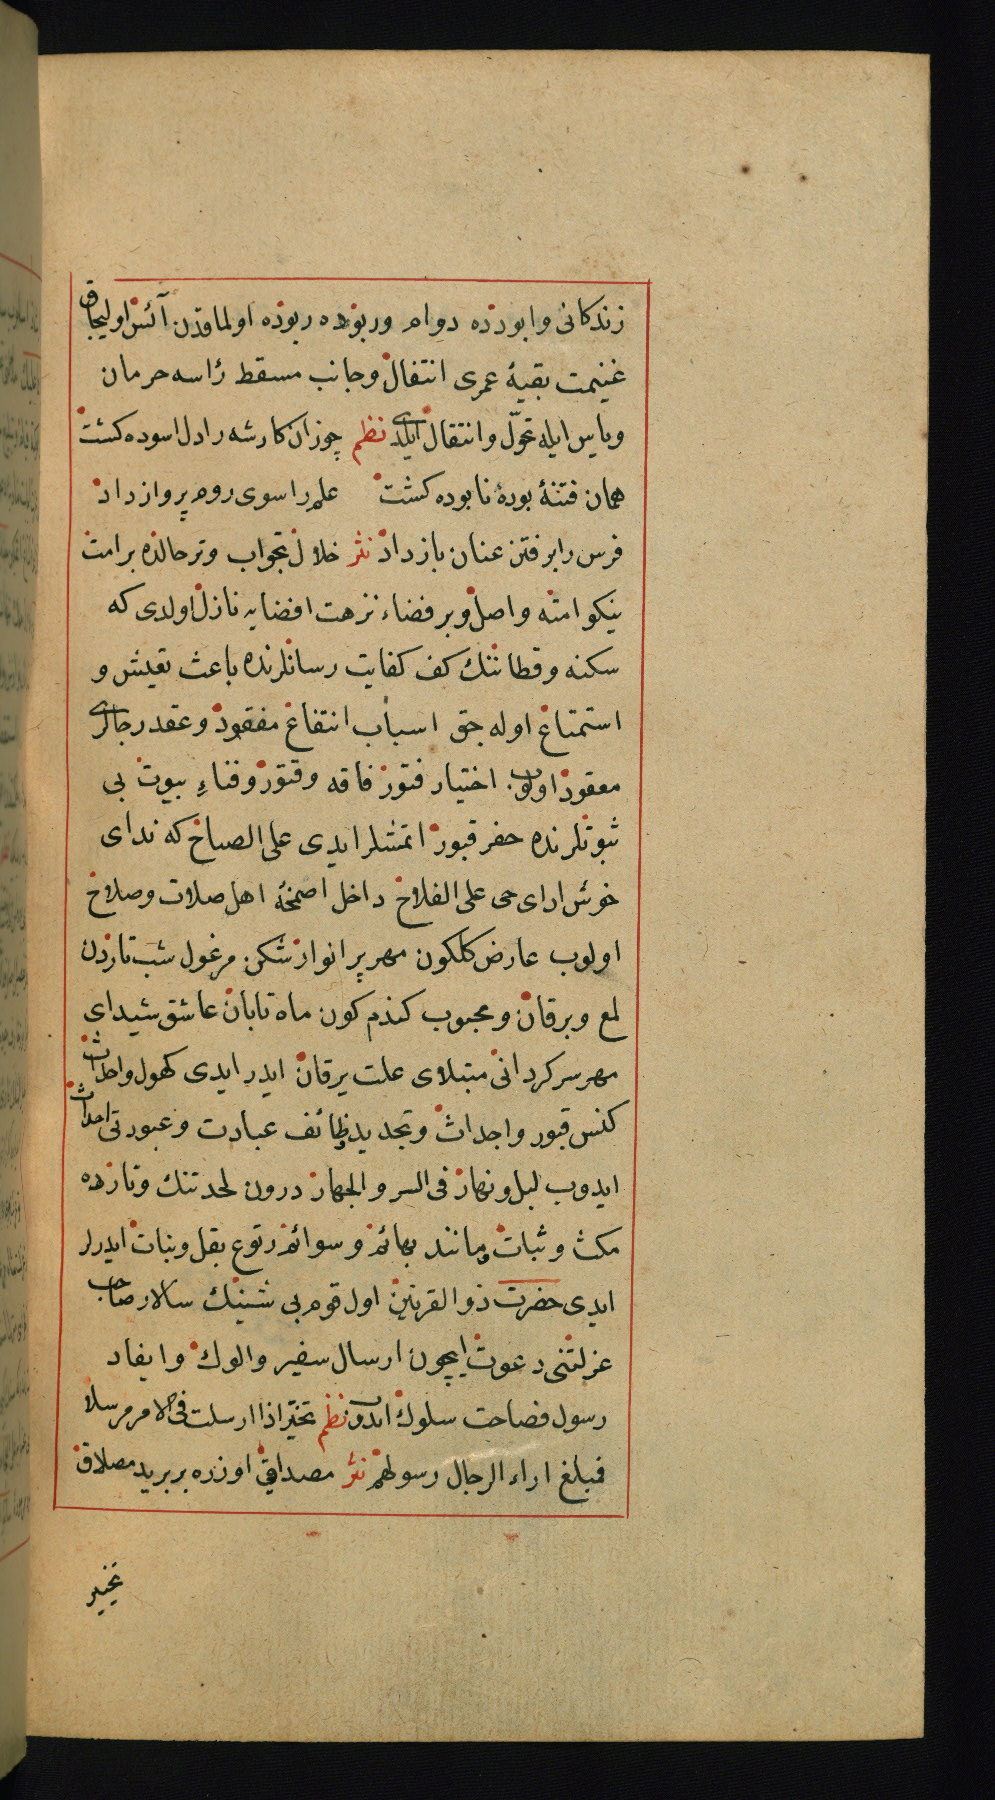 زندکانی وابودده دوام وربوده ربوده اولماقدن آئس اولیجاق
غنیمت بقیهٔ عمری انتفال وجانب مسقط رٔاسه حرمان
ویاس ایله تحوّل وانتقال ایلدی نظم چوزان کارشه رادل اسوده کشت
همان فتنهٔ بودهٔ نابوده کشت علم راسوی روم پرواز داد
فرس رابرفتن عنان باز داد نثر خلال تجواب وترحالده برامت
نیکوامته واصل وبر فضاء نزهت افضایه نازل اولدی که
سکنه وقطاننك کف کفایت رسانلرنده باعث تعیش و
استمتاع اوله جق اسباب انتفاع مفقود وعقد رجالری
معقود اولوب اختیار فتور فاقه وقتور وفناءِ بیوت بی
ثبوتلرنده حفر قبور اتمشلرایدی علی الصباح که ندای
خوش ادای حی علی الفلاح داخل اصمخهٔ اهل صلات وصلاح
اولوب عارض کلکون مهر پرانوار شکن مرغول شب تاردن
لمع وبرقان ومحبوب کندم کون ماه تابان عاشق شیدای
مهر سرکردانی مبتلای علت یرقان ایدر ایدی کهول واحداث
کنس قبور واجداث وتجدید وظائف عبادت وعبودتی احداث
ایدوب لیل ونهار فی السر والجهار درون لحد تنك وتارده
مکث وثبات ومانند بهائم وسوائم رتوع بقل ونبات ایدرلر
ایدی حضرت ذوالقرنین اول قوم بی شینك سالار صاحب
عزلتنی دعوت ایچون ارسال سفیر والوك وایفاد
رسول فصاحت سلوك ایدوب نظم تخیّر اذا ارسلت فی الامر مرسلا
فبلغ اراء الرجال رسولهم نثر مصداقی اوزره بر برید مصلاق
تخییر